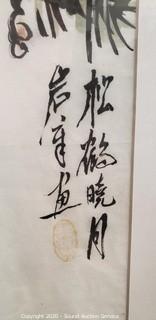 松鹤晓月
岩峰画
Copyright 2020 - Sound Auction Service